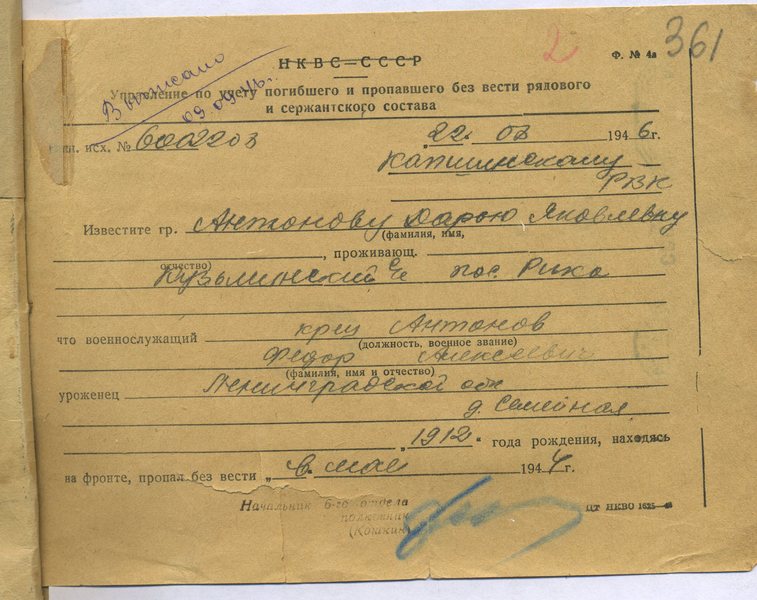 2
361
Ф. № 4а
НКВС=СССР
Выписано
09.09.
Управление по учету погибшего и пропавшего без вести рядового
и сержантского состава
исх. № 6002203
„22. 03 1946г.
Капшинскому
РВК
Известите гр. Антонову Дарью Яковлевну
(фамилия, имя,
отчество) , проживающ.
Кузьминский пос. Рика
что военнослужащий крец Антонов
(должность, военное звание)
Федор Алексеевич
(фамилия, имя и отчество)
уроженец Ленинградской обл
д. Семейная
„1912“ года рождения, находясь
на фронте, пропал без вести „в мае 1944г.
Начальник 6-го отдела
(Кошкин)